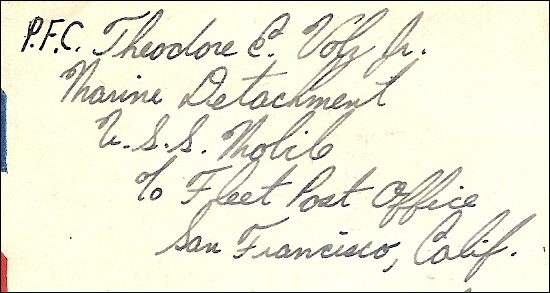 P.F.C. Theodore E. Volz Jr.
Marine Detachment
U.S.S. Mobile
c/o Fleet Post Office
San Francisco, Calif.